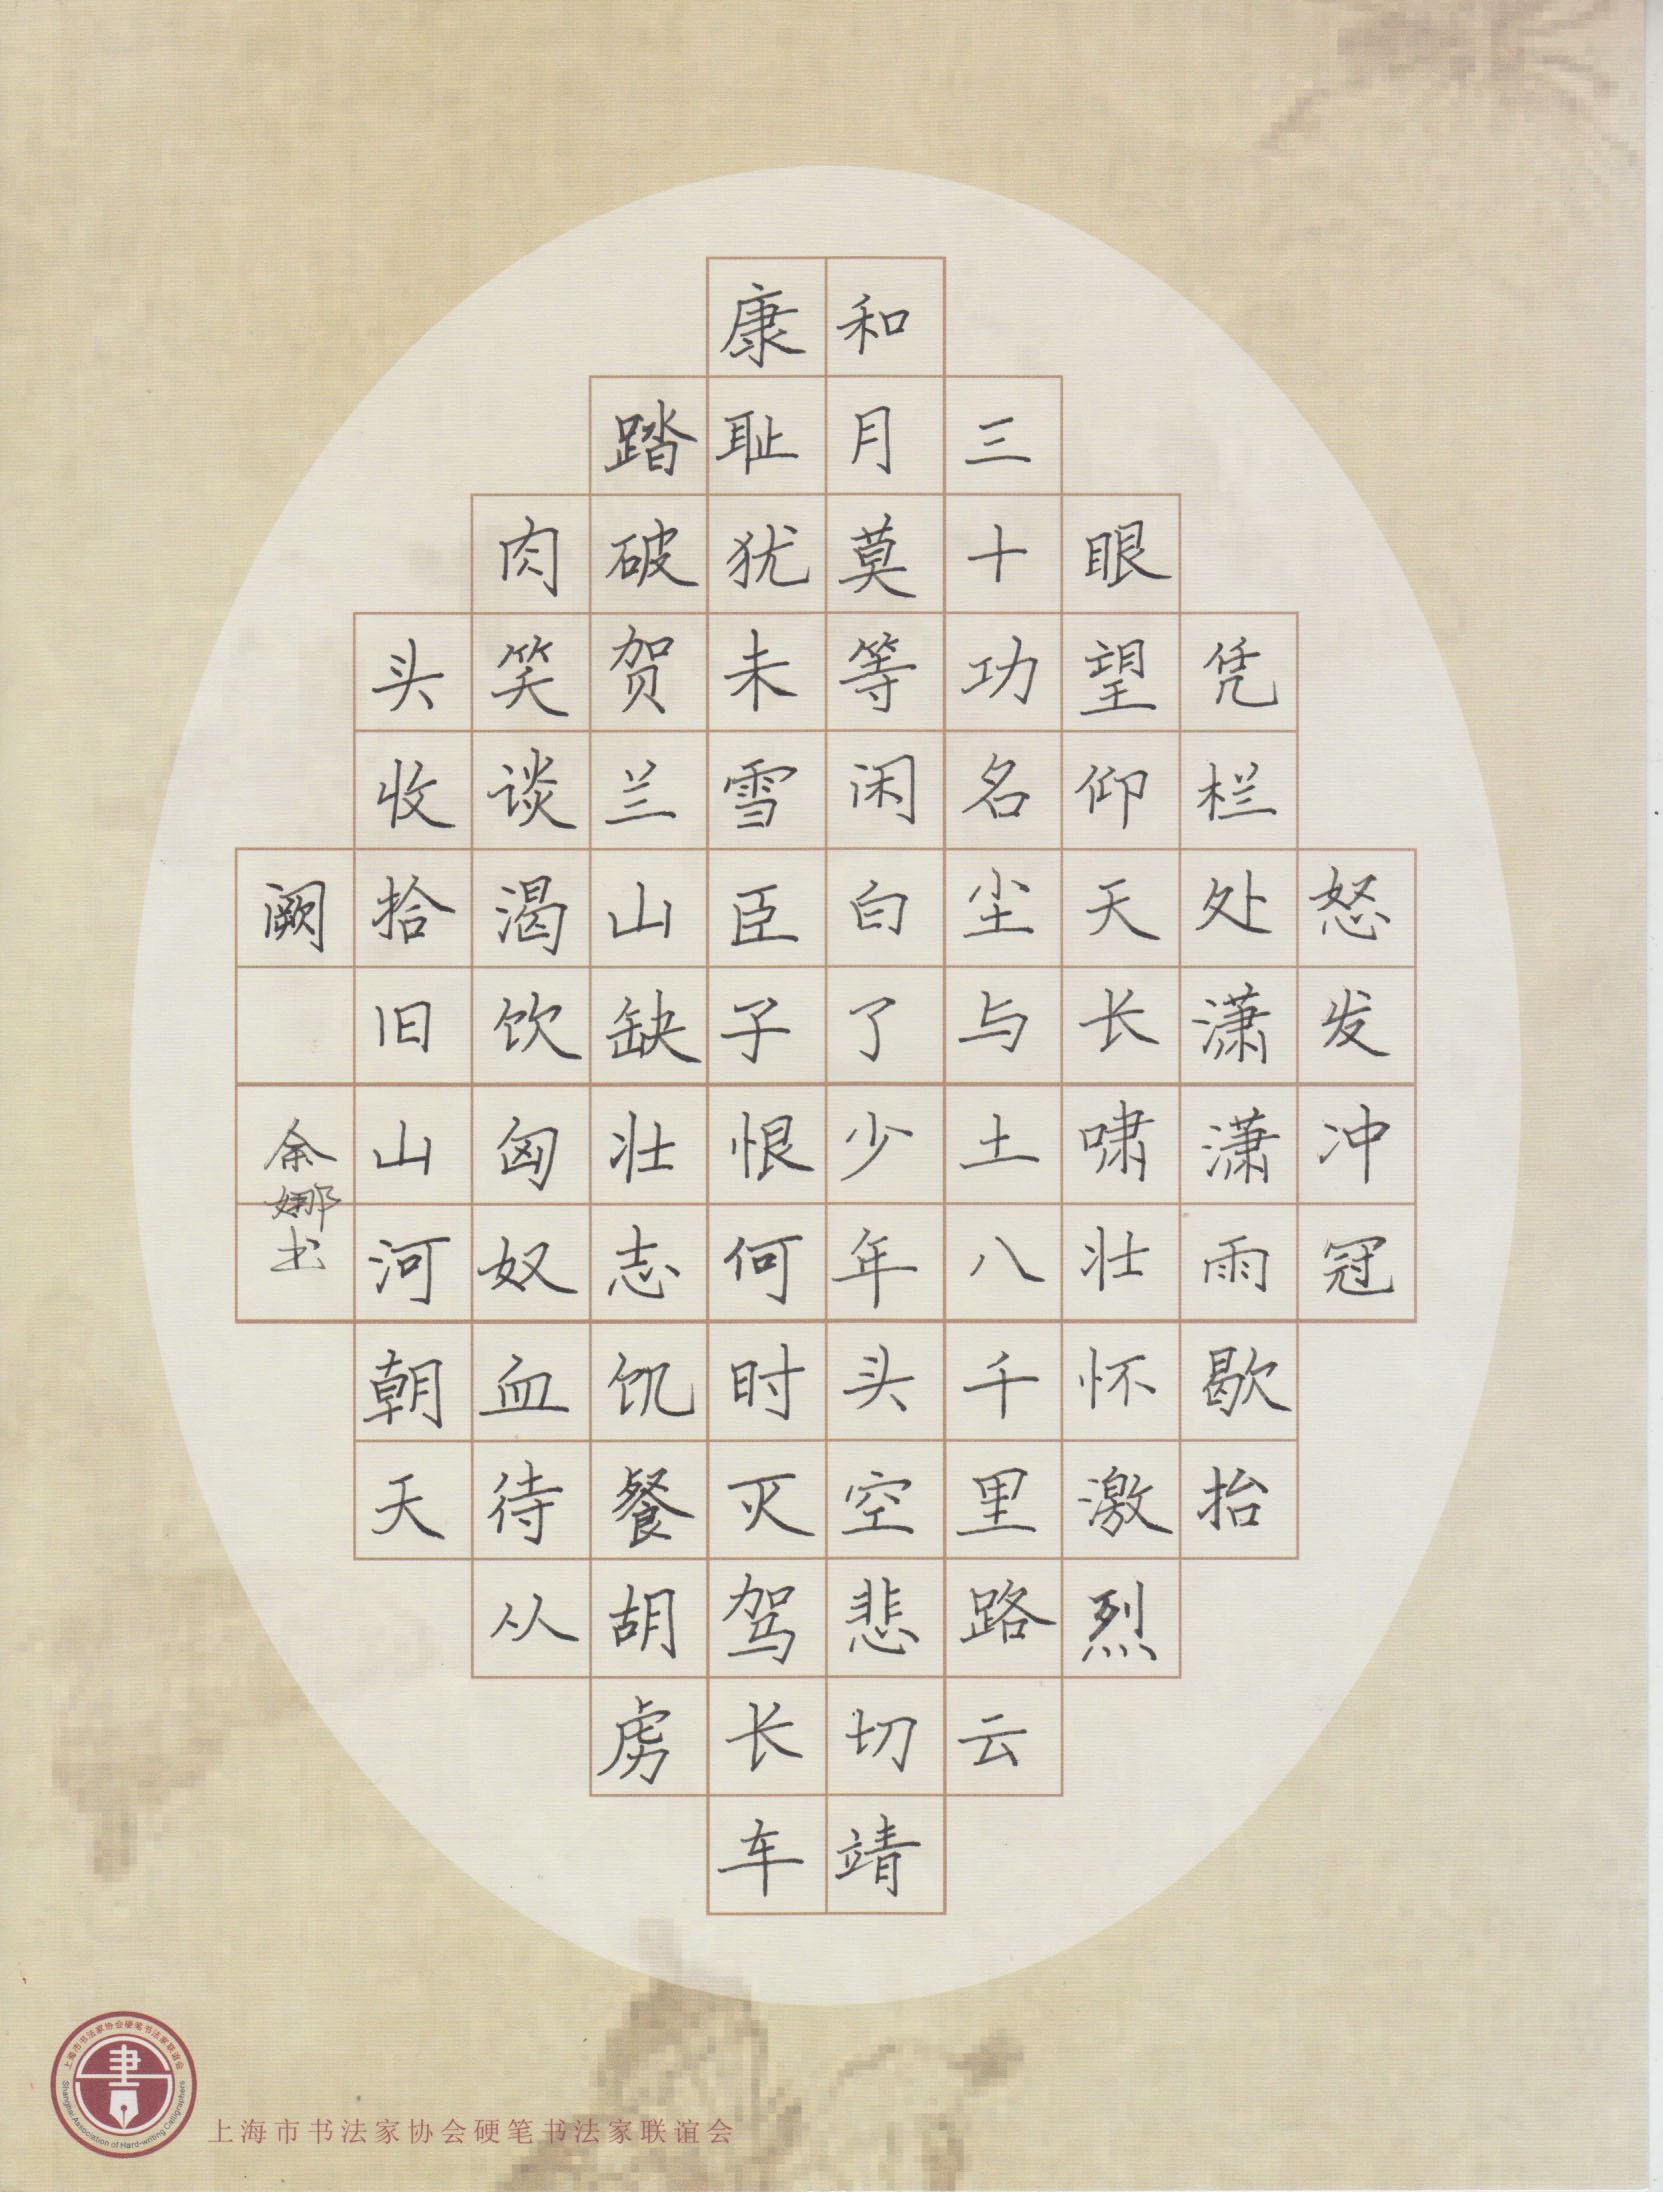 怒发冲冠
凭栏处潇潇雨歇抬
眼望仰天长啸壮怀激烈
三十功名尘与土八千里路云
和月莫等闲白了少年头空悲切靖
康耻犹未雪臣子恨何时灭驾长车
踏破贺兰山缺壮志饥餐胡虏
肉笑谈渴饮匈奴血待从
头收拾旧山河朝天
阙
余娜书
上海市书法家协会硬笔书法家联谊会
Shanghai Association of Hard-writing Calligraphers
上海市书法家协会硬笔书法家联谊会